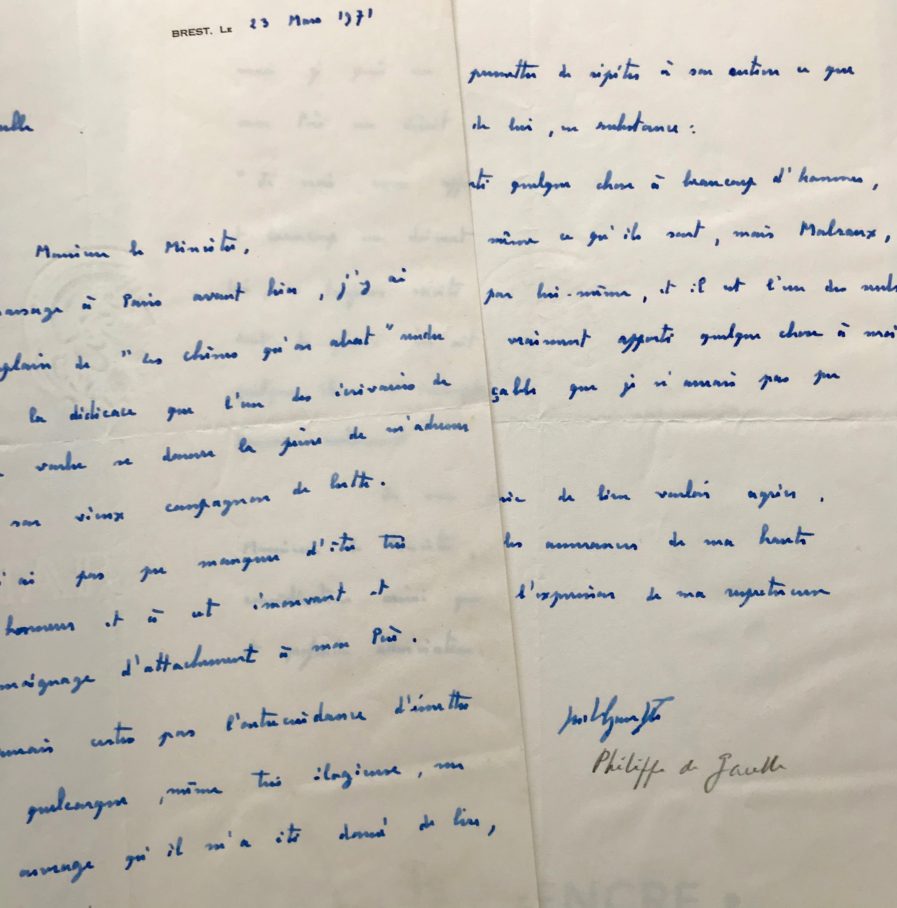 BREST. LE 23 Mars 1971
aulle
Monsieur le Ministre,
passage à Paris avant hier, j'y ai
exemplaire de "Les chênes qu'on abat" revêtu
la dédicace que l'un des écrivains de
voulu se donner la peine de m'adresser
son vieux compagnon de lutte.
n'ai pas pu manquer d'être très
honneur et à cet émouvant et
témoignage d'attachement à mon Père.
aurais certes pas l'outrecuidance d'émettre
quelconque, même très élogieuse, sur
ouvrage qu'il m'a été donné de lire,
permettre de répéter à son auteur ce que
de lui, en substance :
quelque chose à beaucoup d'hommes,
même ce qu'ils sont, mais Malraux,
par lui-même, et il est l'un des seuls
vraiment apporté quelque chose à moi
que je n'aurais pas pu
de bien vouloir agréer,
les assurances de ma haute
l'expression de ma respectueuse
Philippe de Gaulle
ENCRE